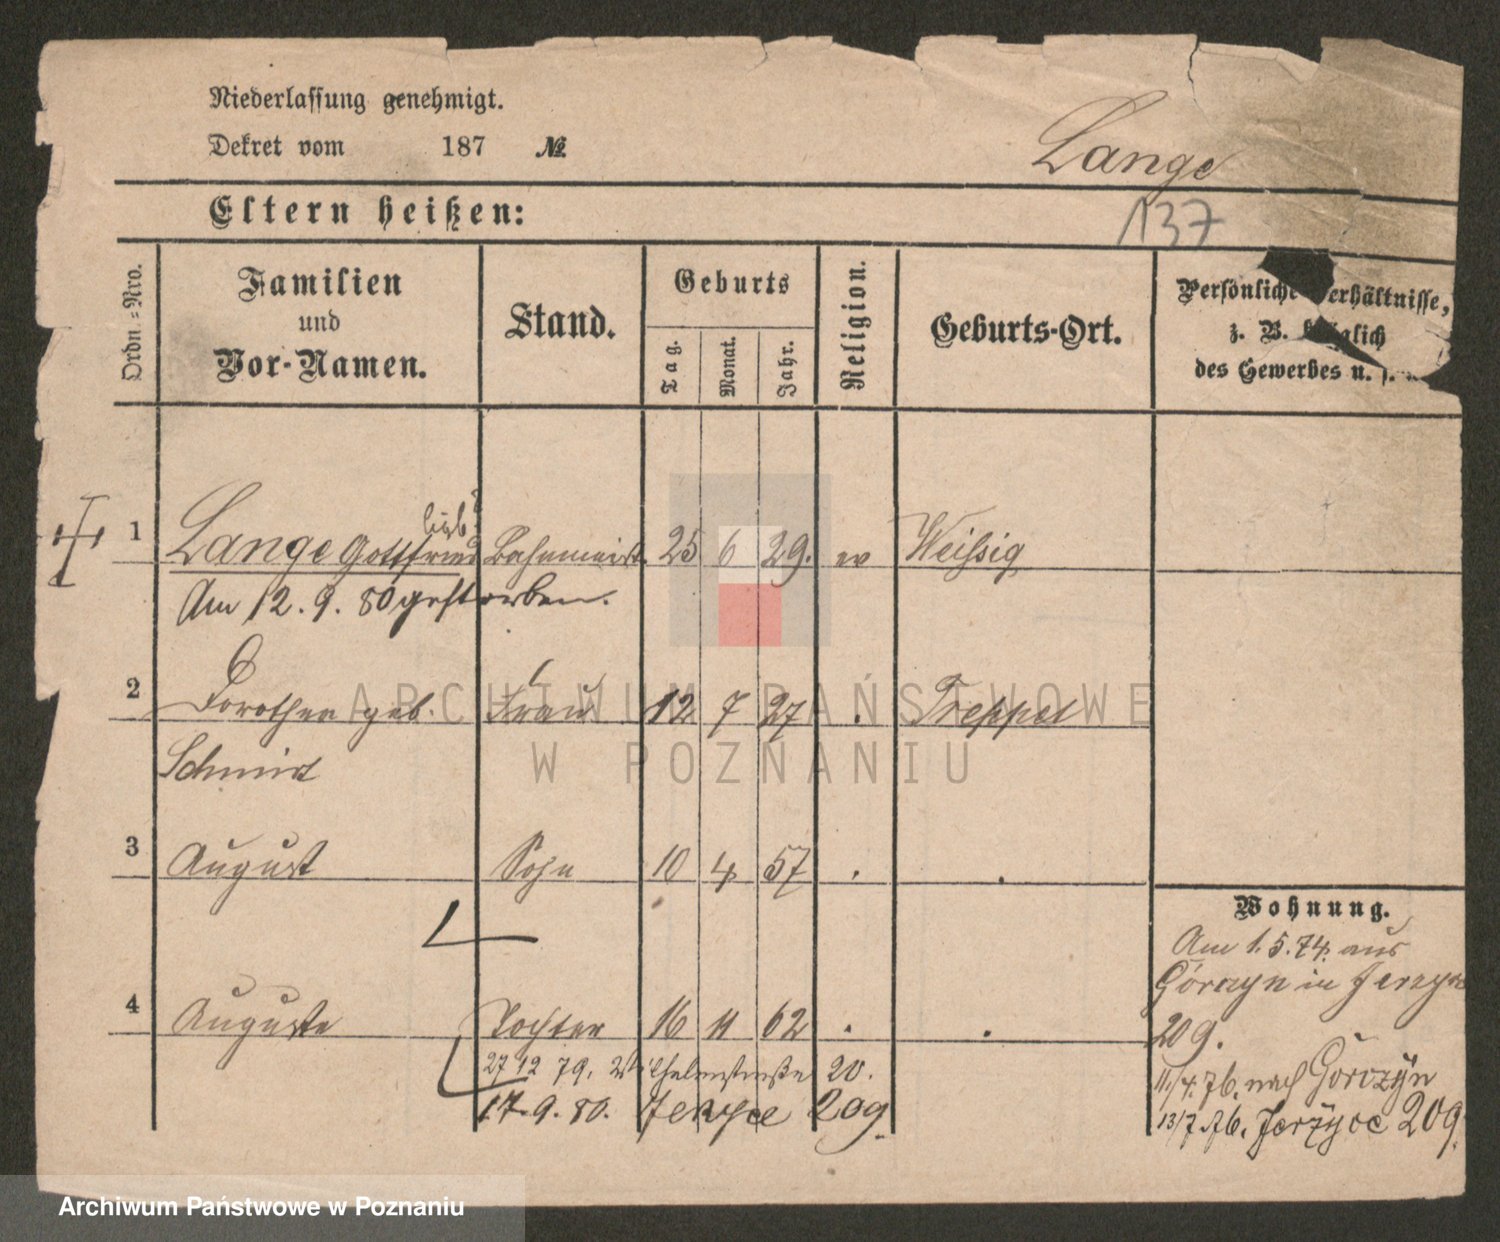 Niederlassung genehmigt.
Dekret vom 187 №
Lange
Eltern heißen:
137
Ordn.-Nro.
Familien
und
Vor-Namen.
Stand.
Geburts
Tag.
Monat.
Jahr.
Religion.
Geburts-Ort.
Persönliche Verhältnisse,
z. B. bezüglich
des Gewerbes u. s.
lieb
1 Lange Gottfried Bahnmeist. 25 6 29. ev Weißig
Am 12. 9. 80 gestorben.
2 Dorothea geb. Frau 12 7 27 . Treppel
Schmidt
3 August Sohn 10 4 57 . .
Wohnung.
Am 1.5.74. aus
Górczyn in Jerzyce
209.
4 Auguste Tochter 16 11 62 . .
27 12 79. Wilhelmstraße 20.
11./4. 76. nach Gorczyn
17. 9. 80. Jerzyce 209.
13/7. 76. Jerzyce 209.
ARCHIWUM PAŃSTWOWE
W POZNANIU
Archiwum Państwowe w Poznaniu